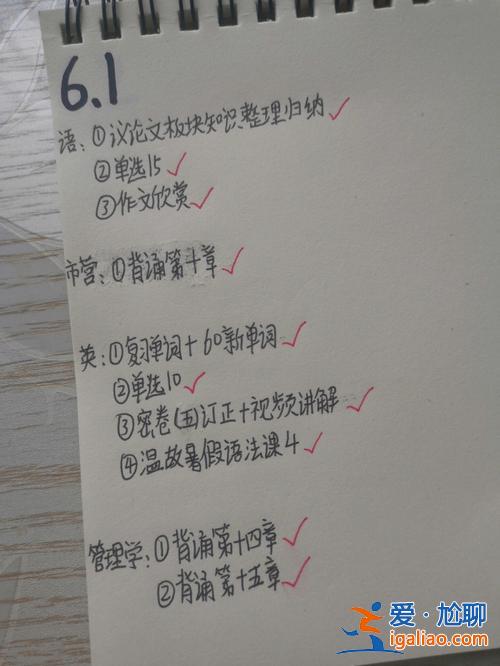 6.1
语：①议论文板块知识整理归纳✓
②单选15✓
③作文欣赏✓
市营：①背诵第十章✓
英：①复习单词+60新单词✓
②单选10✓
③密卷(五)订正+视频讲解✓
④温故暑假语法课4✓
管理学：①背诵第十四章✓
②背诵第十五章✓
爱·尬聊
igaliao.com